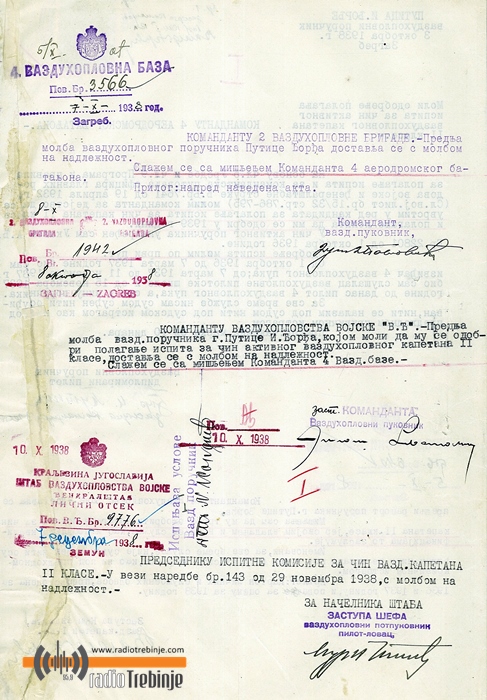 4. ВАЗДУХОПЛОВНА БАЗА
Пов. Бр. 3566
7-X-1938 год.
Загреб.
КОМАНДАНТУ 2 ВАЗДУХОПЛОВНЕ БРИГАДЕ.-Предња
молба ваздухопловног поручника Путице Ђорђа доставља се с молбом
на надлежност.
Слажем се са мишљењем Команданта 4 аеродромског ба-
таљона.
Прилог:напред наведена акта.
8-X
Командант,
вазд.пуковник,
Пов. Бр. 1942
8 октобра 1938
ЗАГРЕБ — ZAGREB
КОМАНДАНТУ ВАЗДУХОПЛОВСТВА ВОЈСКЕ "В.Ђ".-Предња
молба вазд.поручника г.Путице И.Ђорђа,којом моли да му се одоб-
ри полагање испита за чин активног ваздухопловног капетана II
Класе,доставља се с молбом на надлежност.
Слажем се са мишљењем Команданта 4 Вазд.базе.-
Пов.
10. X. 1938
заст. КОМАНДАНТА
Ваздухопловни пуковник
I
10. X 1938
КРАЉЕВИНА ЈУГОСЛАВИЈА
ШТАБ ВАЗДУХОПЛОВСТВА ВОЈСКЕ
ЂЕНЕРАЛШТАБ
ЛИЧНИ ОТСЕК
Пов. В.Ђ. Бр. 9776
7 децембра 1938 год.
ЗЕМУН
Испуњава услове
Вазд. поручник
ПРЕДСЕДНИКУ ИСПИТНЕ КОМИСИЈЕ ЗА ЧИН ВАЗД.КАПЕТАНА
II КЛАСЕ.-У вези наредбе бр.143 од 29 новембра 1938,с молбом на
надлежност.-
ЗА НАЧЕЛНИКА ШТАБА
ЗАСТУПА ШЕФА
ваздухопловни потпуковник
пилот-ловац,
www.radiotrebinje.com
radio Trebinje